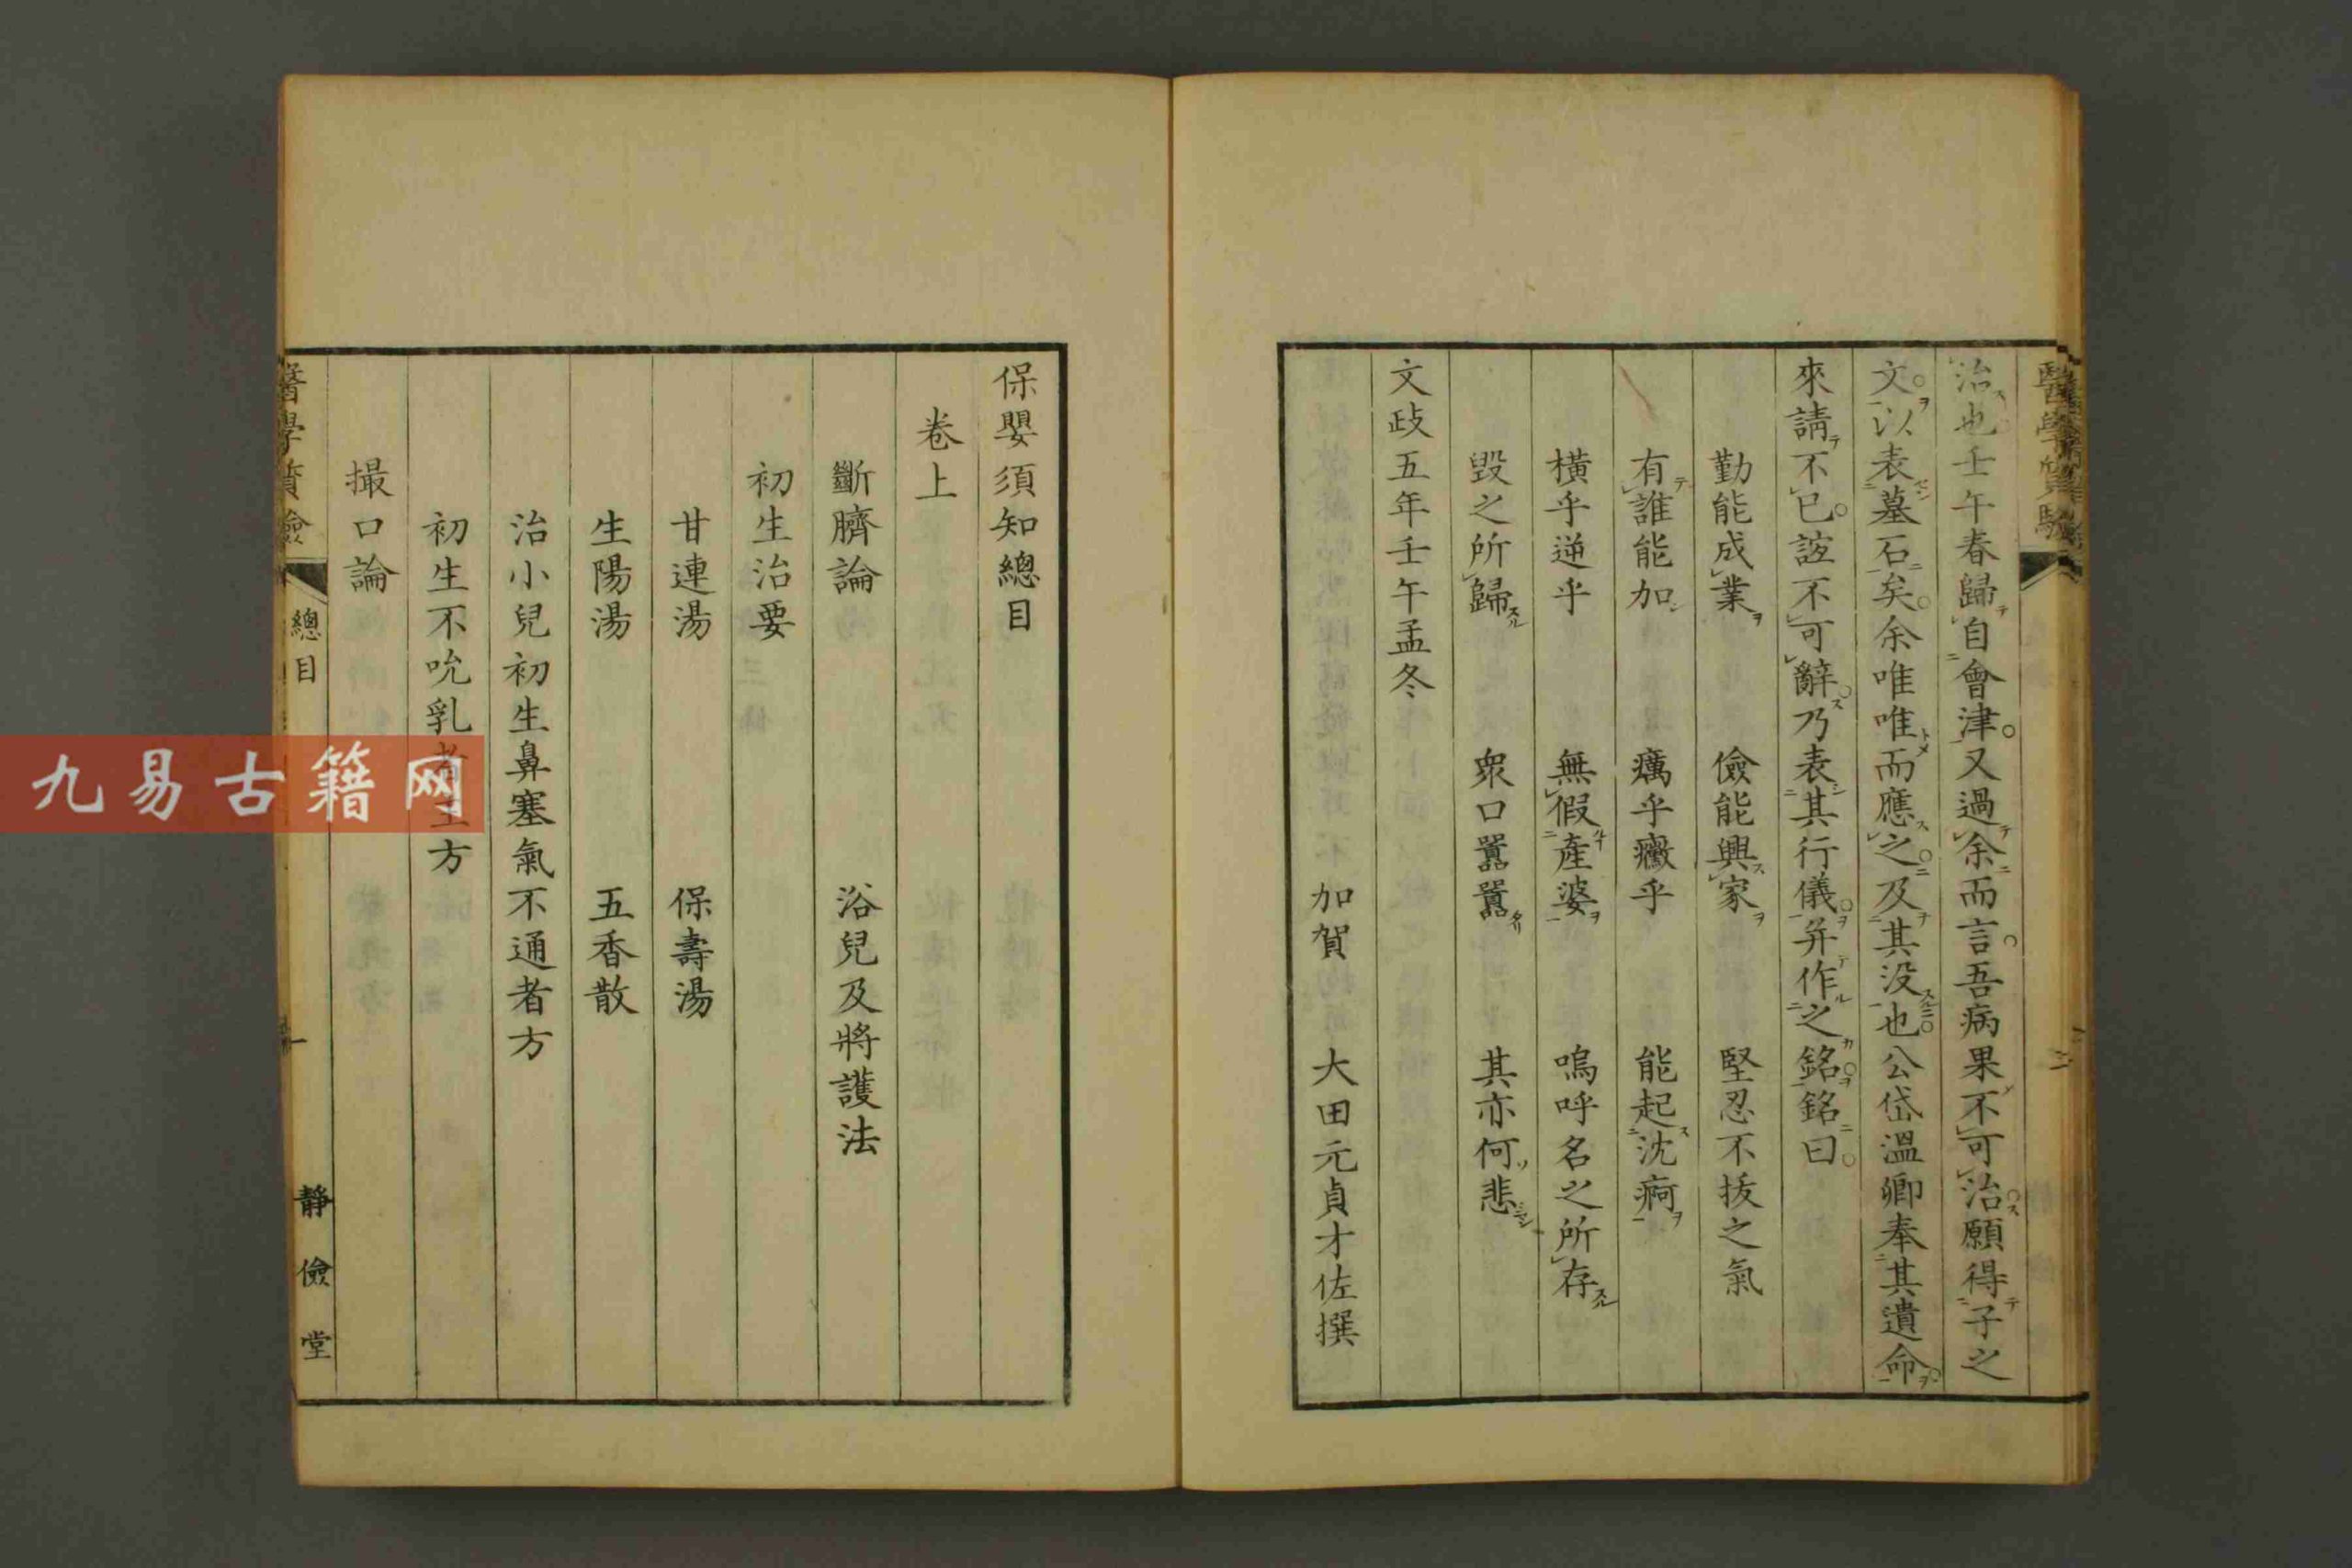 治也壬午春歸自會津又過余而言吾病果不可治願得子之
文以表墓石矣余唯唯而應之及其没也公岱溫卿奉其遺命
來請不已誼不可辭乃表其行儀并作之銘銘曰
勤能成業 儉能興家 堅忍不拔之氣
有誰能加 癘乎癥乎 能起沈痾
橫乎逆乎 無假產婆 嗚呼名之所存
毀之所歸 衆口囂囂 其亦何悲
文政五年壬午孟冬
加賀 大田元貞才佐撰
保嬰須知總目
卷上
斷臍論 浴兒及將護法
初生治要
甘連湯 保壽湯
生陽湯 五香散
治小兒初生鼻塞氣不通者方
初生不吮乳者主方
撮口論
總目
靜儉堂
九易古籍网